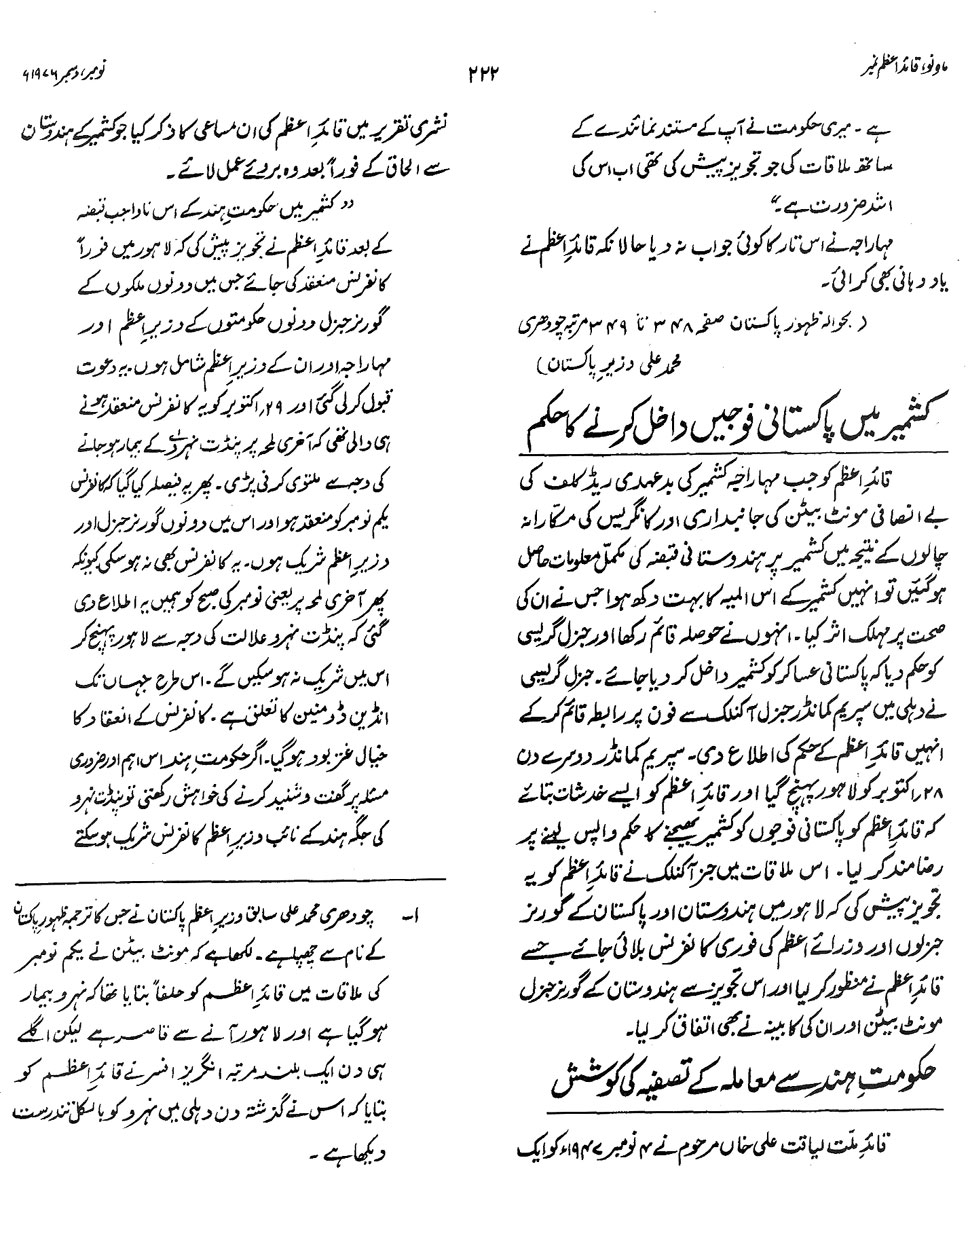 ماہ نو، قائد اعظم نمبر
۲۲۲
نومبر، دسمبر ۱۹۷۶ء
ہے ۔ میری حکومت نے آپ کے مستند نمائندے کے
ساتھ ملاقات کی جو تجویز پیش کی تھی اب اس کی
اشد ضرورت ہے۔“
مہاراجہ نے اس تار کا کوئی جواب نہ دیا حالانکہ قائدِ اعظم نے
یاد دہانی بھی کرائی۔
( بحوالہ ظہور پاکستان صفحہ ۳۴۸ تا ۳۴۹ مرتبہ چودھری
محمد علی وزیر پاکستان)
کشمیر میں پاکستانی فوجیں داخل کرنے کا حکم
قائدِ اعظم کو جب مہاراجہ کشمیر کی بدعہدی ریڈ کلف کی
بے انصافی مونٹ بیٹن کی جانبداری اور کانگریس کی مکارانہ
چالوں کے نتیجہ میں کشمیر پر ہندوستانی قبضہ کی مکمل معلومات حاصل
ہوگئیں تو انہیں کشمیر کے اس المیہ کا بہت دکھ ہوا جس نے ان کی
صحت پر مہلک اثر کیا۔ انہوں نے حوصلہ قائم رکھا اور جنرل گریسی
کو حکم دیا کہ پاکستانی عساکر کو کشمیر داخل کر دیا جائے۔ جنرل گریسی
نے دہلی میں سپریم کمانڈر جنرل آکنلک سے فون پر رابطہ قائم کرکے
انہیں قائدِ اعظم کے حکم کی اطلاع دی۔ سپریم کمانڈر دوسرے دن
۲۸؍اکتوبر کو لاہور پہنچ گیا اور قائدِ اعظم کو ایسے خدشات بتائے
کہ قائدِ اعظم کو پاکستانی فوجوں کو کشمیر بھیجنے کا حکم واپس لینے پر
رضامند کر لیا۔ اس ملاقات میں جنرل آکنلک نے قائدِ اعظم کو یہ
تجویز پیش کی کہ لاہور میں ہندوستان اور پاکستان کے گورنر
جنرلوں اور وزرائے اعظم کی فوری کانفرنس بلائی جائے جسے
قائدِ اعظم نے منظور کر لیا اور اس تجویز سے ہندوستان کے گورنر جنرل
مونٹ بیٹن اور ان کی کابینہ نے بھی اتفاق کر لیا۔
حکومتِ ہند سے معاملہ کے تصفیہ کی کوشش
قائدِ ملت لیاقت علی خاں مرحوم نے ۴ نومبر ۱۹۴۷ء کو ایک
نشری تقریر میں قائدِ اعظم کی ان مساعی کا ذکر کیا جو کشمیر کے ہندوستان
سے الحاق کے فوراً بعد وہ بروئے عمل لائے۔
”کشمیر میں حکومتِ ہند کے اس ناواجب قبضہ
کے بعد قائدِ اعظم نے تجویز پیش کی کہ لاہور میں فوراً
کانفرنس منعقد کی جائے جس میں دونوں ملکوں کے
گورنر جنرل دونوں حکومتوں کے وزیرِ اعظم اور
مہاراجہ اور ان کے وزیرِ اعظم شامل ہوں۔ یہ دعوت
قبول کر لی گئی اور ۲۹؍اکتوبر کو یہ کانفرنس منعقد ہونے
ہی والی تھی کہ آخری لمحہ پر پنڈت نہرو کے بیمار ہو جانے
کی وجہ سے ملتوی کرنی پڑی۔ پھر یہ فیصلہ کیا گیا کہ کانفرنس
یکم نومبر کو منعقد ہو اور اس میں دونوں گورنر جنرل اور
وزیرِ اعظم شریک ہوں۔ یہ کانفرنس بھی نہ ہو سکی کیونکہ
پھر آخری لمحہ پر یعنی نومبر کی صبح کو ہمیں یہ اطلاع دی
گئی کہ پنڈت نہرو علالت کی وجہ سے لاہور پہنچ کر
اس میں شریک نہ ہو سکیں گے۔ اس طرح جہاں تک
انڈین ڈومنین کا تعلق ہے۔ کانفرنس کے انعقاد کا
خیال غتر بود ہو گیا۔ اگر حکومتِ ہند اس اہم اور ضروری
مسئلہ پر گفت و شنید کرنے کی خواہش رکھتی تو پنڈت نہرو
کی جگہ ہند کے نائب وزیرِ اعظم کانفرنس شریک ہو سکتے
۱۔ چودھری محمد علی سابق وزیرِ اعظم پاکستان نے جس کا ترجمہ ظہور پاکستان
کے نام سے چھپا ہے۔ لکھا ہے کہ مونٹ بیٹن نے یکم نومبر
کی ملاقات میں قائدِ اعظم کو حلفاً بتایا تھا کہ نہرو بیمار
ہو گیا ہے اور لاہور آنے سے قاصر ہے لیکن اگلے
ہی دن ایک بلند مرتبہ انگریز افسر نے قائدِ اعظم کو
بتایا کہ اس نے گزشتہ دن دہلی میں نہرو کو بالکل تندرست
دیکھا ہے۔